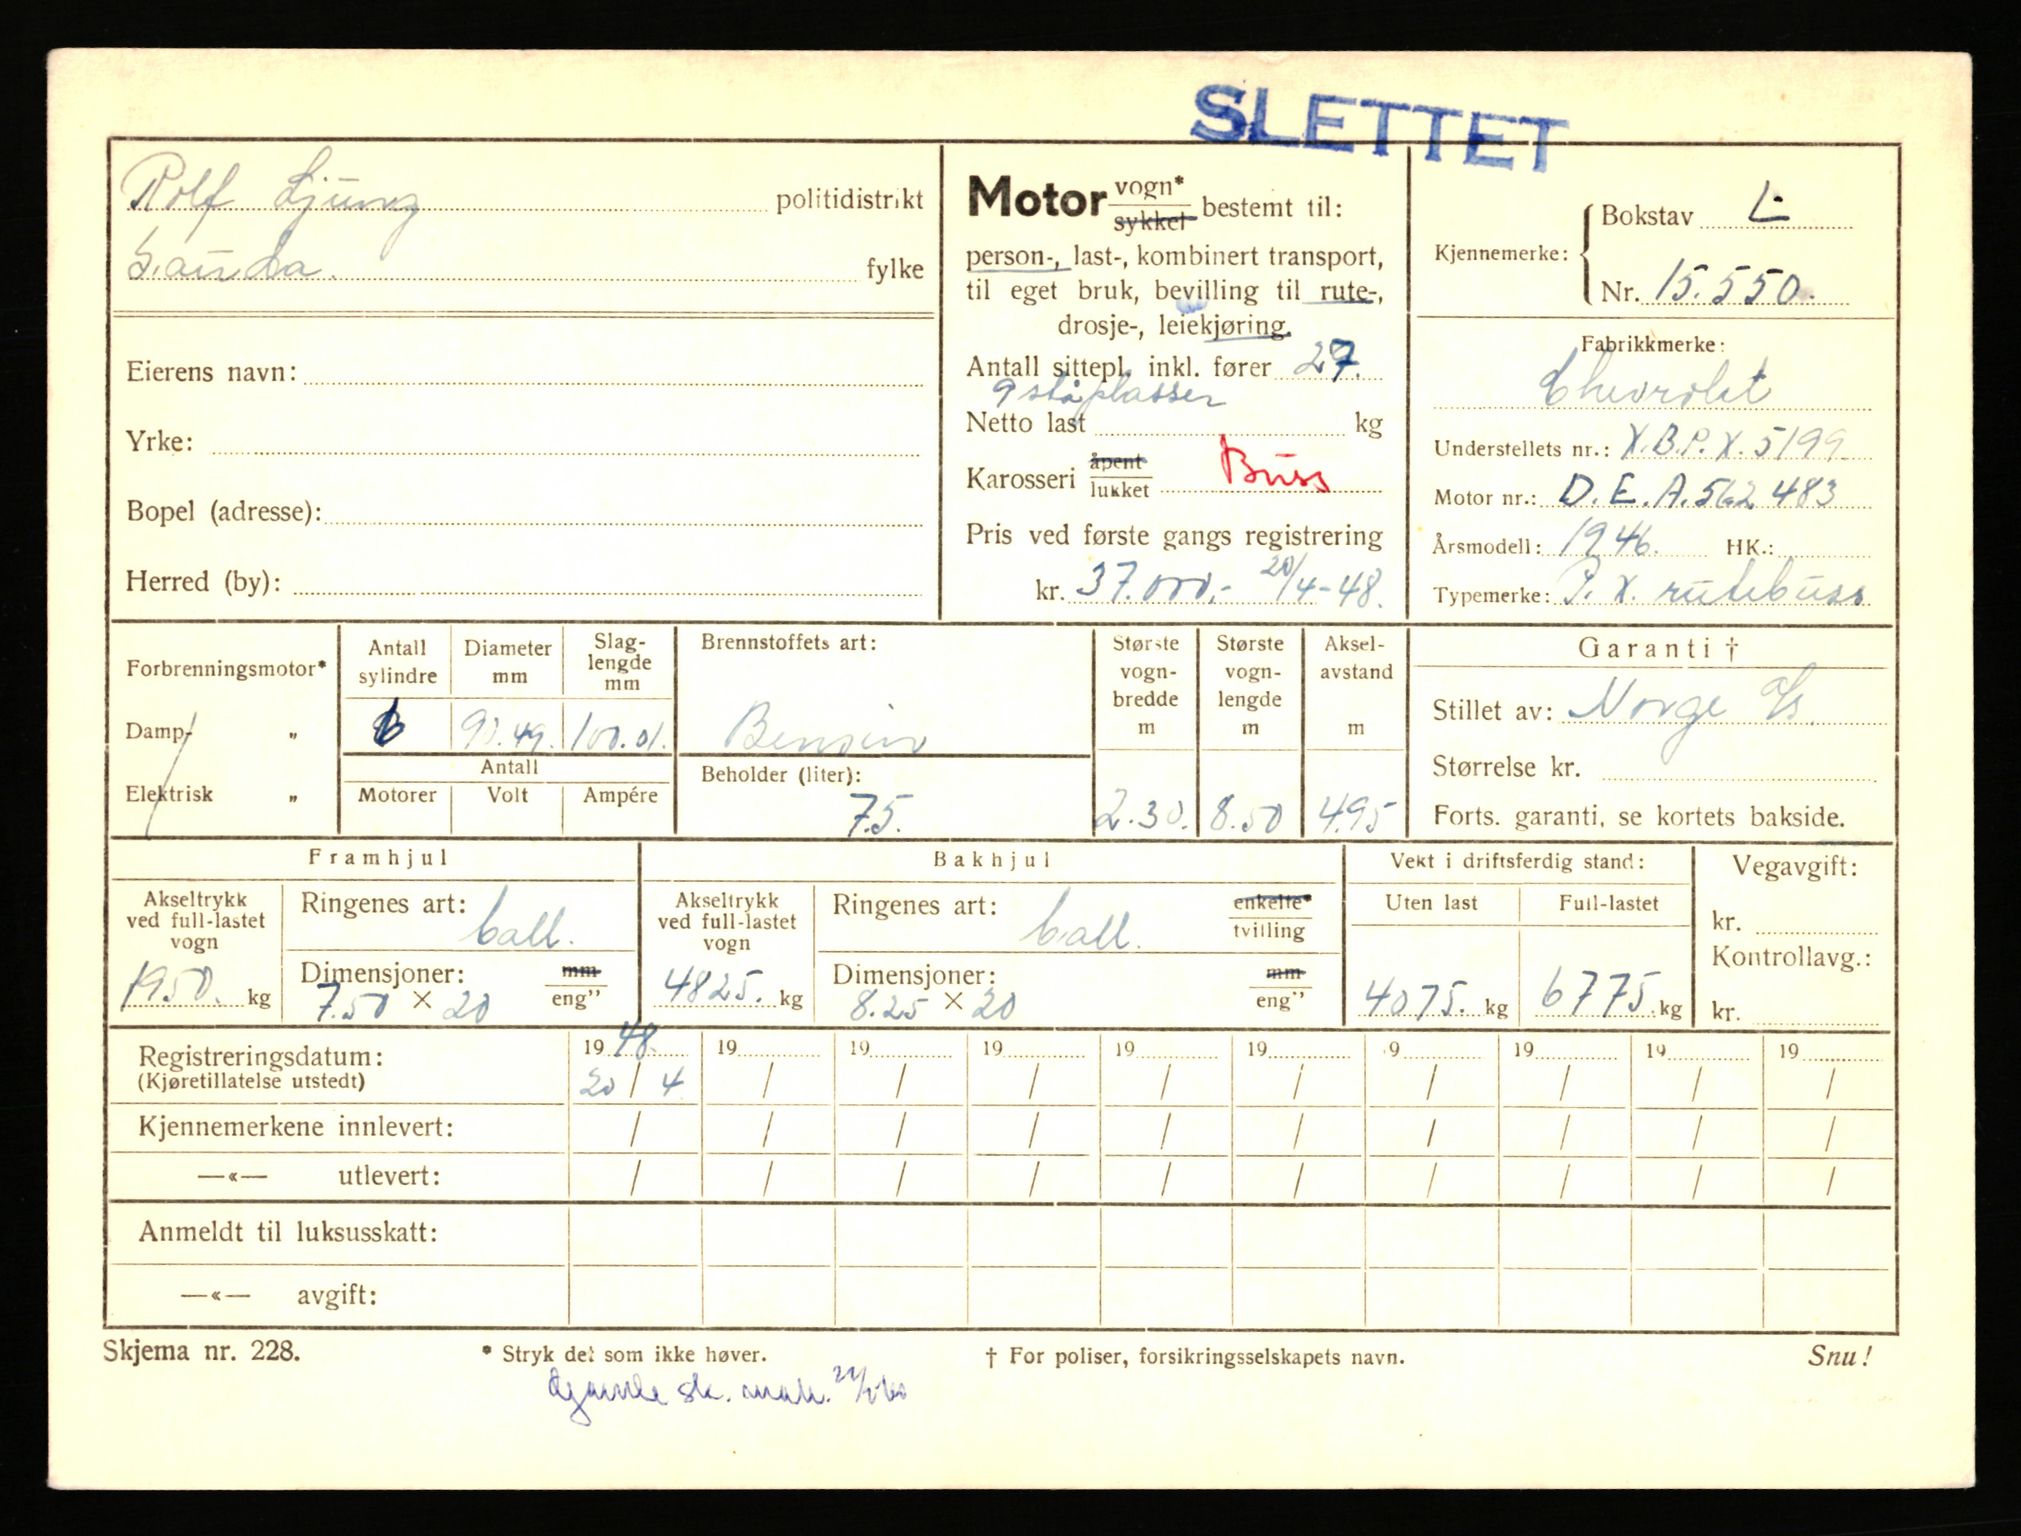 SLETTET
Rolf Ljung politidistrikt
Sauda. fylke
Eierens navn:
Yrke:
Bopel (adresse):
Herred (by):
Motor vogn* sykkel bestemt til:
person-, last-, kombinert transport,
til eget bruk, bevilling til rute-,
drosje-, leiekjøring.
Antall sittepl. inkl. fører 27.
9 ståplasser
Netto last kg
Karosseri åpent lukket Buss
Pris ved første gangs registrering
kr. 37.000,- 20/4-48.
Kjennemerke: Bokstav L
Nr. 15.550.
Fabrikkmerke:
Chevrolet
Understellets nr.: X.B.P.X. 5199
Motor nr.: D.E.A. 562 483
Årsmodell: 1946. HK.:
Typemerke: P.X. rutebuss
Forbrenningsmotor*
Damp- „
Elektrisk „
Antall sylindre Diameter mm Slag-lengde mm
6 90.49. 100.01.
Antall
Motorer Volt Ampére
Brennstoffets art:
Bensin
Beholder (liter):
75.
Største vogn-bredde m Største vogn-lengde m Aksel-avstand m
2.30. 8.50 4.95
Garanti †
Stillet av: Norge A/s.
Størrelse kr.
Forts. garanti, se kortets bakside.
Framhjul
Akseltrykk ved full-lastet vogn
1950. kg
Ringenes art: ball.
Dimensjoner: mm eng"
7.50 × 20
Bakhjul
Akseltrykk ved full-lastet vogn
4825. kg
Ringenes art: ball. enkelte* tvilling
Dimensjoner: mm eng"
8.25 × 20
Vekt i driftsferdig stand:
Uten last Full-lastet
4075. kg 6775. kg
Vegavgift:
kr.
Kontrollavg.:
kr.
Registreringsdatum: 19 48. 19 19 19 19 19 19 19 19 19
(Kjøretillatelse utstedt) 20 / 4 / / / / / / / / /
Kjennemerkene innlevert: / / / / / / / / / /
—«— utlevert: / / / / / / / / / /
Anmeldt til luksusskatt:
—«— avgift:
Skjema nr. 228. * Stryk det som ikke høver. † For poliser, forsikringsselskapets navn. Snu!